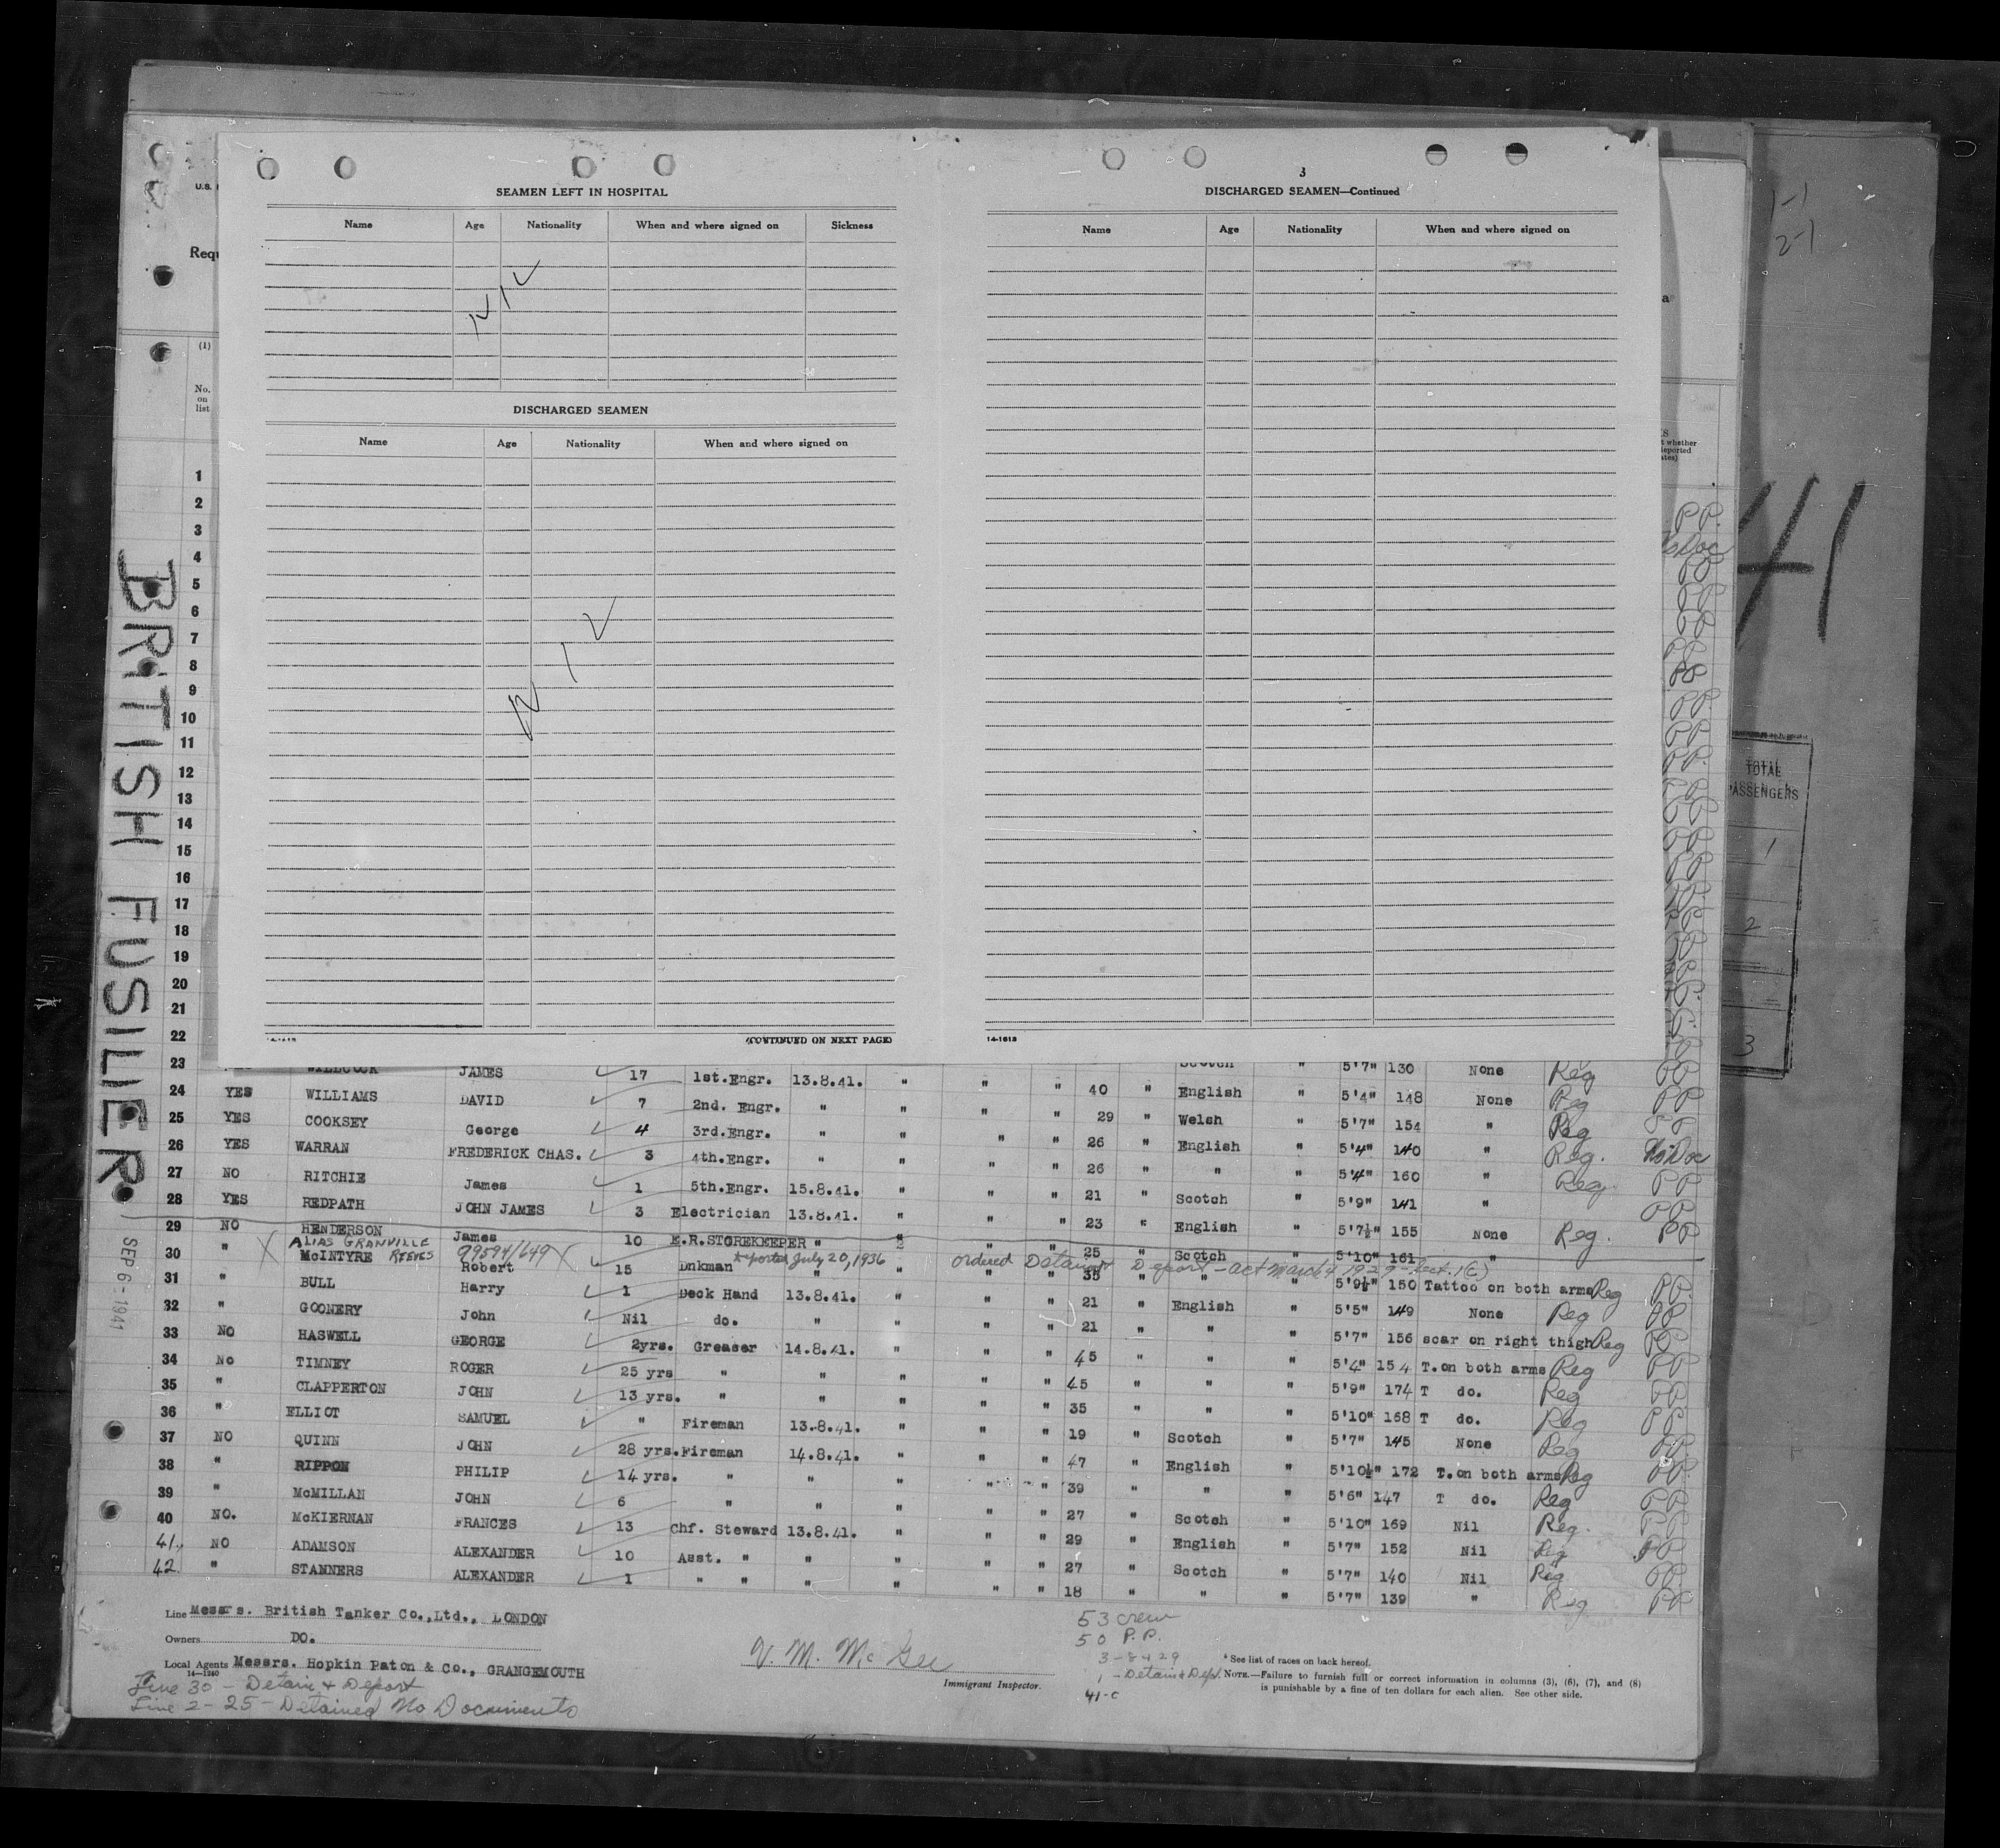 3
SEAMEN LEFT IN HOSPITAL
Name Age Nationality When and where signed on Sickness
NIL
DISCHARGED SEAMEN
Name Age Nationality When and where signed on
NIL
(CONTINUED ON NEXT PAGE)
DISCHARGED SEAMEN—Continued
Name Age Nationality When and where signed on
14-1613
U.S.
(1)
No. on list
41
TOTAL PASSENGERS
1
2
3
BRITISH FUSILIER
SEP 6 - 1941
1
2
3
4
5
6
7
8
9
10
11
12
13
14
15
16
17
18
19
20
21
22 Scotch " 5'7" 130 None Reg PP
23 WILLCOCK JAMES 17 1st.Engr. 13.8.41. " " " 40 " English " 5'4" 148 None Reg PP
24 YES WILLIAMS DAVID 7 2nd. Engr. " " " " 29 " Welsh " 5'7" 154 " Reg
25 YES COOKSEY George 4 3rd.Engr. " " " " 26 " English " 5'4" 140 " Reg. No Doc
26 YES WARRAN FREDERICK CHAS. 3 4th.Engr. " " " " 26 " " " 5'4" 160 " Reg. PP
27 NO RITCHIE James 1 5th.Engr. 15.8.41. " " " 21 " Scotch " 5'9" 141 " PP
28 YES REDPATH JOHN JAMES 3 Electrician 13.8.41. " " " 23 " English " 5'7½" 155 None Reg. PP
29 NO HENDERSON James 10 E.R.STOREKEEPER " " " " 25 " Scotch " 5'10" 161 "
ALIAS GRANVILLE REEVES 99594/649 X Deported July 20, 1936 ordered Detain & Deport - act March 4 1929 - sect. 1(E)
30 " X McINTYRE Robert 15 Dnkman " " " " 35 " " " 5'9½" 150 Tattoo on both arms Reg PP
31 " BULL Harry 1 Deck Hand 13.8.41. " " " 21 " English " 5'5" 149 None Reg PP
32 " GOONERY John Nil do. " " " " 21 " " " 5'7" 156 scar on right thigh Reg PP
33 NO HASWELL GEORGE 2yrs. Greaser 14.8.41. " " " 45 " " " 5'4" 154 T.on both arms Reg PP
34 No TIMNEY ROGER 25 yrs " " " " " 45 " " " 5'9" 174 T do. Reg PP
35 " CLAPPERTON JOHN 13 yrs. " " " " " 35 " " " 5'10" 168 T do. Reg PP
36 " ELLIOT SAMUEL " Fireman 13.8.41. " " " 19 " Scotch " 5'7" 145 None Reg PP
37 NO QUINN JOHN 28 yrs.Fireman 14.8.41. " " " 47 " English " 5'10½" 172 T.on both arms Reg PP
38 " RIPPON PHILIP 14 yrs. " " " " " 39 " " " 5'6" 147 T do. Reg PP
39 " McMILLAN JOHN 6 " " " " " 27 " Scotch " 5'10" 169 Nil Reg. PP
40 NO. McKIERNAN FRANCES 13 chf. Steward 13.8.41. " " " 29 " English " 5'7" 152 Nil Reg PP
41. NO ADAMSON ALEXANDER 10 Asst. " " " " " 27 " Scotch " 5'7" 140 Nil Reg PP
42 " STANNERS ALEXANDER 1 " " " " " " 18 " " " 5'7" 139 " Reg PP
Line Messrs. British Tanker Co.,Ltd., LONDON
Owners DO.
Local Agents Messrs. Hopkin Paton & Co., GRANGEMOUTH
14-1240
Line 30 - Detain & Deport
Line 2 - 25 - Detained No Documents
V. M. McGee
Immigrant Inspector.
53 crew
50 P.P.
1 - Detain & Dept.
41-c
* See list of races on back hereof.
NOTE.—Failure to furnish full or correct information in columns (3), (6), (7), and (8)
is punishable by a fine of ten dollars for each alien. See other side.